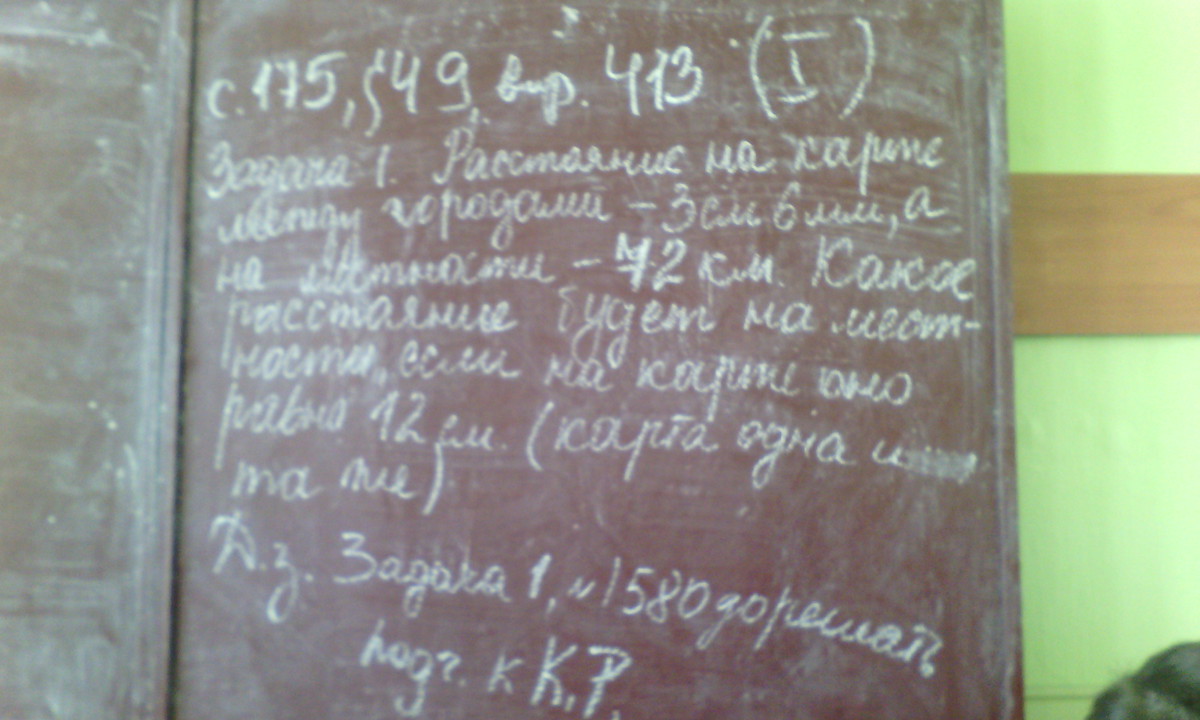 с. 175, §49, впр. 413 (I)
Задача 1. Расстояние на карте
между городами – 3 см 6 мм, а
на местности – 72 км. Какое
расстояние будет на мест-
ности, если на карте оно
равно 12 см. (карта одна и
та же)
Д.з. Задача 1, №1580 дорешать
подг. к К.Р.